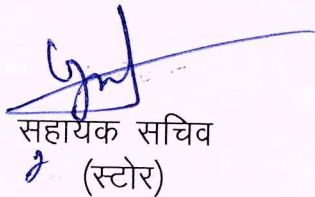 सहायक सचिव
(स्टोर)